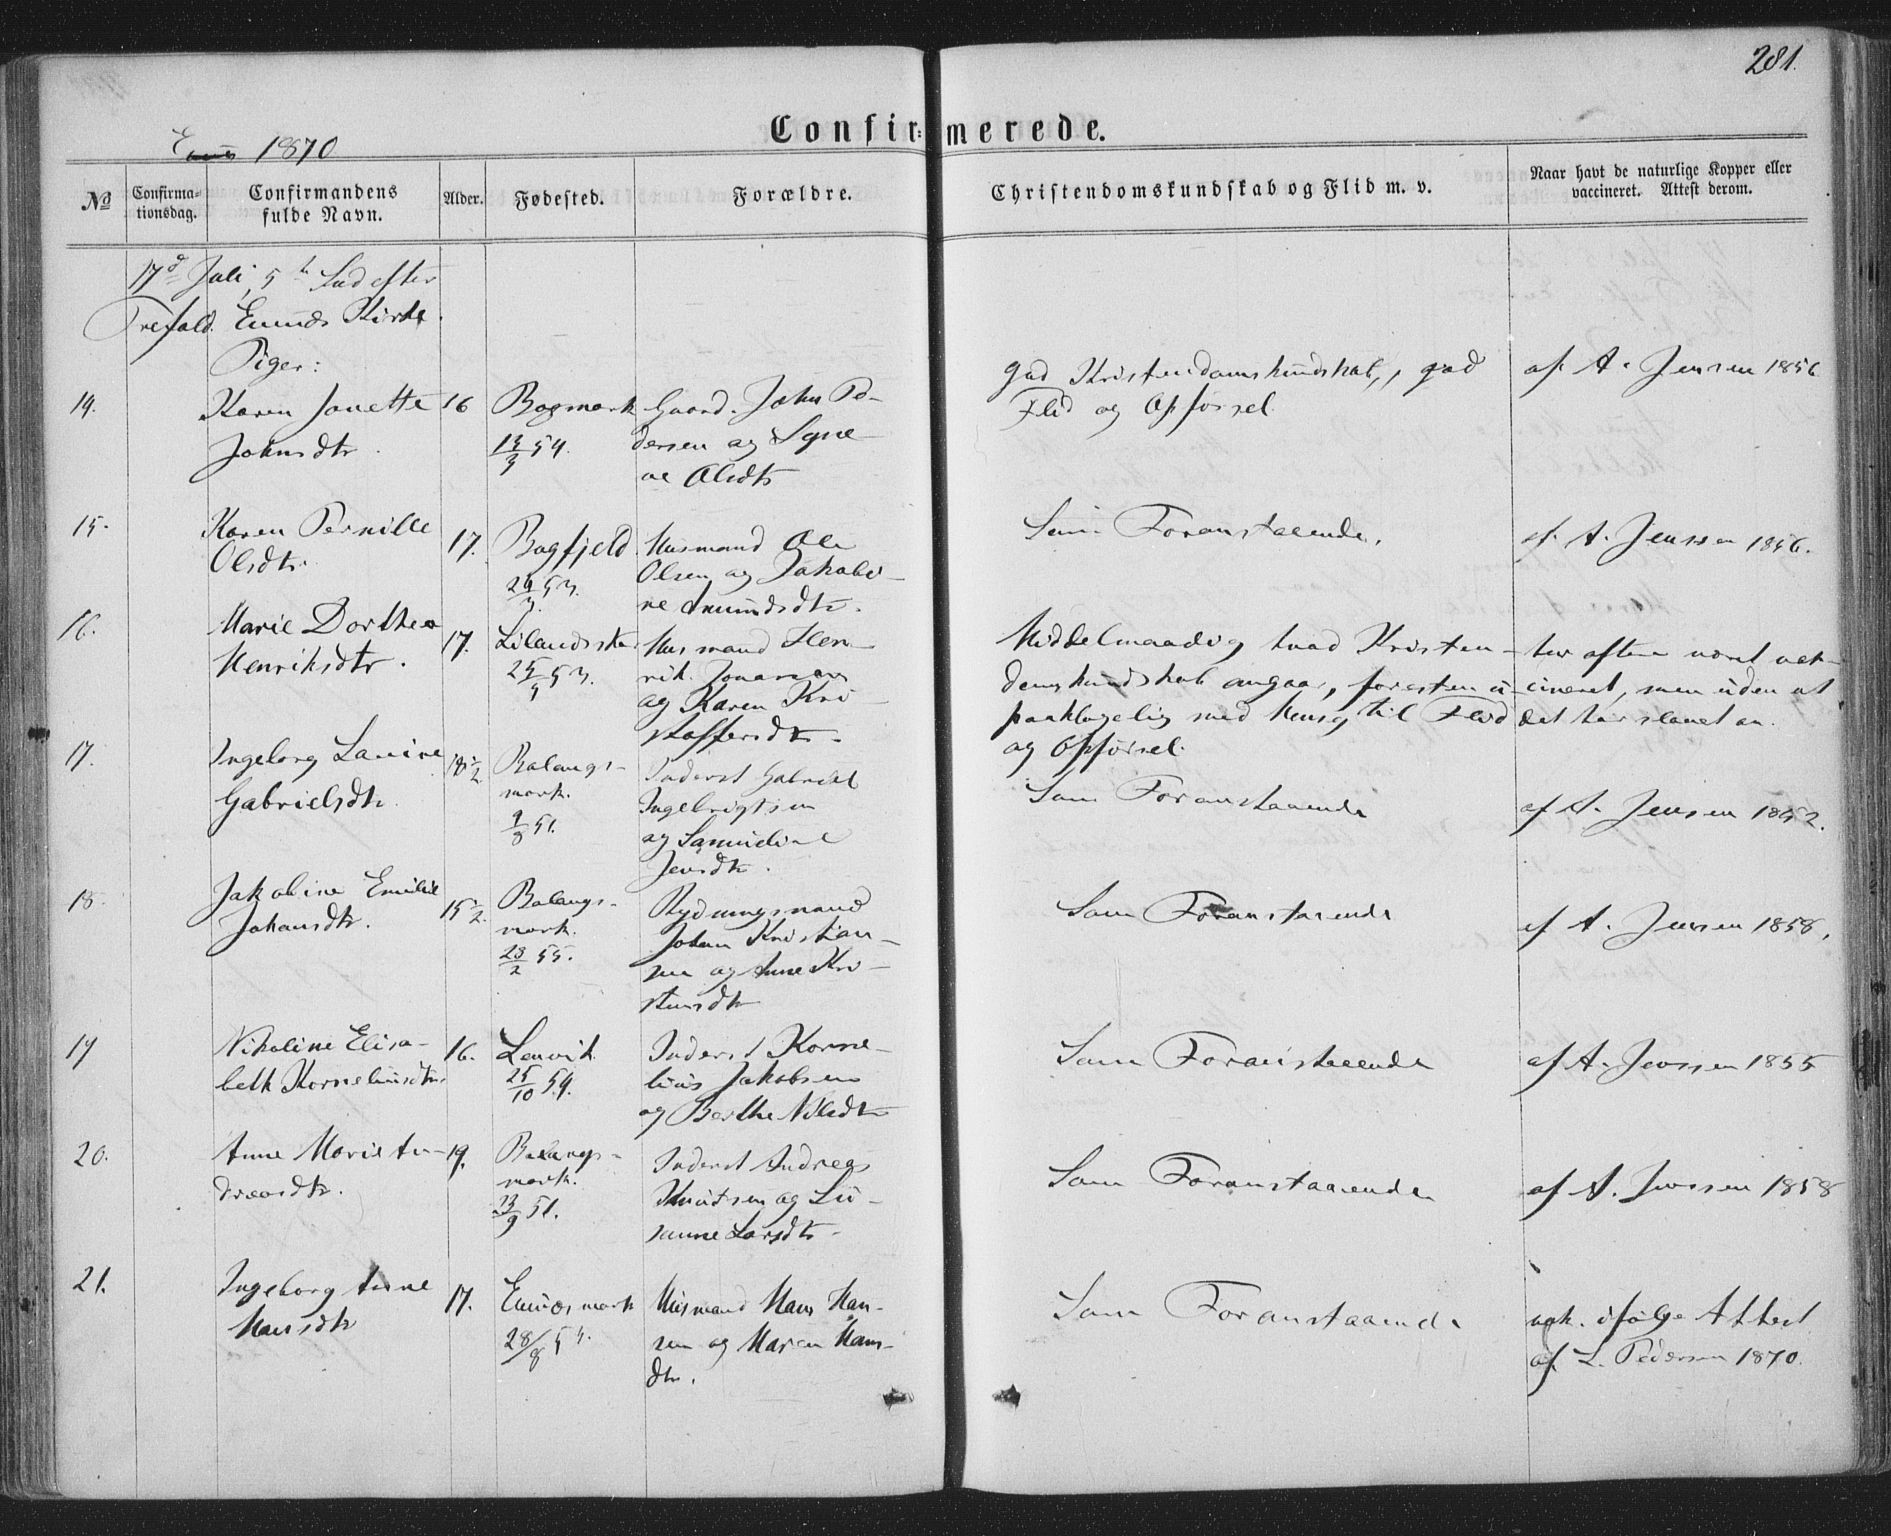 281.
Confirmerede.
Evenes 1870
No
Confirmationsdag.
Confirmandens fulde Navn.
Alder.
Fødested.
Forældre.
Christendomskundskab og Flid m. v.
Naar havt de naturlige Kopper eller vaccineret. Attest derom.
17d Juli, 5t Snd efter
Trefold. Evenes Kirke.
Piger:
14.
Karen Janette
Johnsdtr.
16
Bogmark
13/3 54.
Gaard. John Pe-
dersen og Syne-
ve Olsdtr
god Kristendomskundskab, god
Flid og Opførsel
af A. Jenssen 1856
15.
Karen Pernille
Olsdtr.
17.
Bogfjeld
24/3 53.
Husmand Ole
Olsen og Jakobi-
ne Amundsdtr.
Som Foranstaaende.
af A. Jenssen 1856.
16.
Marie Dorthea
Henriksdtr.
17.
Lilandssk.
25/5 53.
Husmand Hen-
rik Jonassen
og Karen Kri-
stoffersdtr.
Middelmaadig hvad Kristen-
domskundskab angaar, foresten u-
paaklagelig med Hensg til Flid
og Opførsel.
har oftere været vak-
cineret, men uden at
det har slaaet an.
17.
Ingeborg Lavine
Gabrielsdtr.
18½
Balangs-
mark.
9/8 51.
Inderst Gabriel
Ingebrigtsen
og Samueline
Jensdtr.
Som Foranstaaende
af A. Jenssen 1852.
18.
Jakobine Emilie
Johansdtr.
15½
Balangs-
mark.
28/2 55.
Rydningsmand
Johan Kristian-
sen og Anne Kri-
stensdtr
Som Foranstaaende
af A. Jenssen 1858.
19
Nikoline Elisa-
beth Korneliusdtr.
16.
Lenvik
25/10 54.
Inderst Korne-
lius Jakobsen
og Berthe Nilsdtr
Som Foranstaaende
af A. Jenssen 1855
20.
Anne Marie An-
dreasdtr.
19.
Balangs-
mark.
13/9 51.
Inderst Andreas
Knutsen og Su-
sanne Larsdtr.
Som Foranstaaende
af A. Jenssen 1858
21.
Ingeborg Anne
Hansdtr
17.
Evenesmark
28/8 53.
Husmand Hans Han-
sen og Maren Hans-
dtr.
Som Foranstaaende
vak. ifølge Attest
af L. Pedersen 1870.